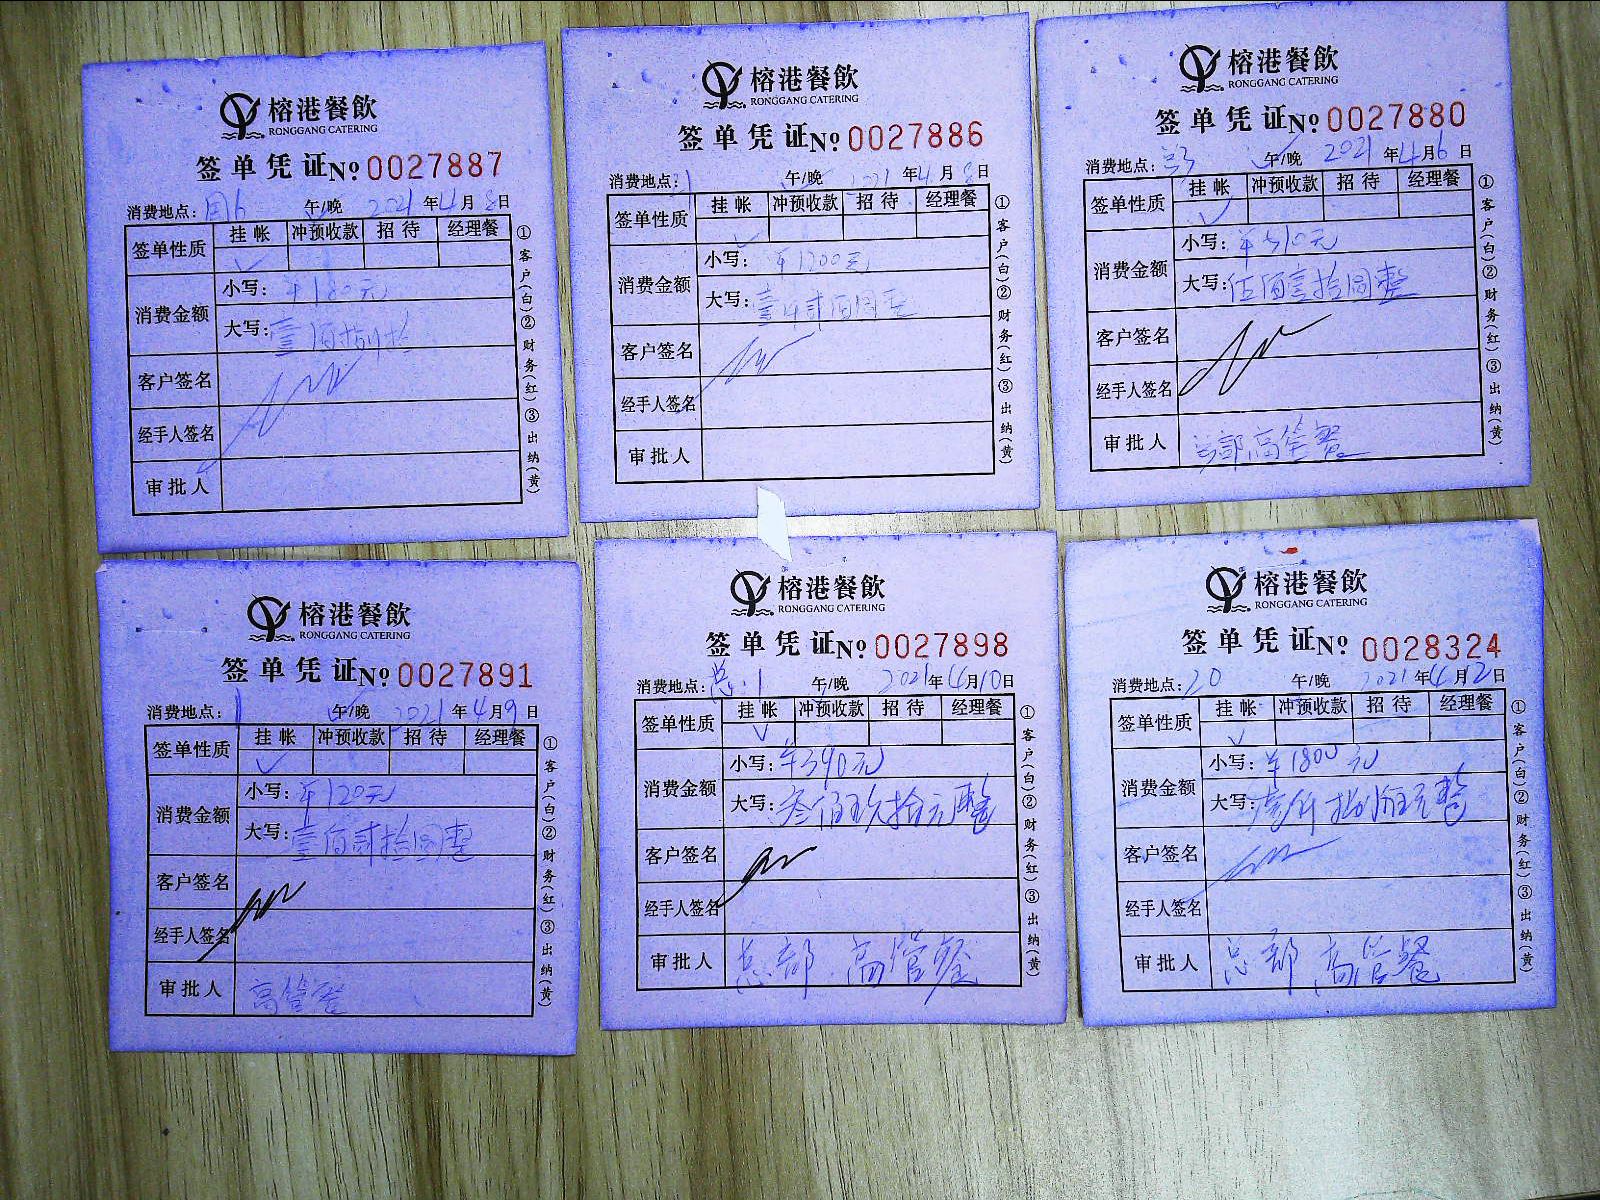 榕港餐飲
RONGGANG CATERING
签单凭证No 0027887
消费地点: 午/晚 2021年4月8日
签单性质 挂帐 冲预收款 招待 经理餐
消费金额 小写: ¥180元
大写: 壹佰捌拾
客户签名
经手人签名
审批人
①客户(白)②财务(红)③出纳(黄)
榕港餐飲
RONGGANG CATERING
签单凭证No 0027886
消费地点: 午/晚 2021年4月8日
签单性质 挂帐 冲预收款 招待 经理餐
消费金额 小写: ¥1200元
大写: 壹仟贰佰圆
客户签名
经手人签名
审批人
①客户(白)②财务(红)③出纳(黄)
榕港餐飲
RONGGANG CATERING
签单凭证No 0027880
消费地点: 午/晚 2021年4月6日
签单性质 挂帐 冲预收款 招待 经理餐
消费金额 小写: ¥510元
大写: 伍佰壹拾圆整
客户签名
经手人签名
审批人 总部高管餐
①客户(白)②财务(红)③出纳(黄)
榕港餐飲
RONGGANG CATERING
签单凭证No 0027891
消费地点: 1 午/晚 2021年4月9日
签单性质 挂帐 冲预收款 招待 经理餐
消费金额 小写: ¥120元
大写: 壹佰贰拾圆整
客户签名
经手人签名
审批人 高管餐
①客户(白)②财务(红)③出纳(黄)
榕港餐飲
RONGGANG CATERING
签单凭证No 0027898
消费地点: 总1 午/晚 2021年4月10日
签单性质 挂帐 冲预收款 招待 经理餐
消费金额 小写: ¥390元
大写: 叁佰玖拾元整
客户签名
经手人签名
审批人 总部 高管餐
①客户(白)②财务(红)③出纳(黄)
榕港餐飲
RONGGANG CATERING
签单凭证No 0028324
消费地点: 20 午/晚 2021年4月2日
签单性质 挂帐 冲预收款 招待 经理餐
消费金额 小写: ¥1800元
大写: 壹仟捌佰元整
客户签名
经手人签名
审批人 总部 高管餐
①客户(白)②财务(红)③出纳(黄)